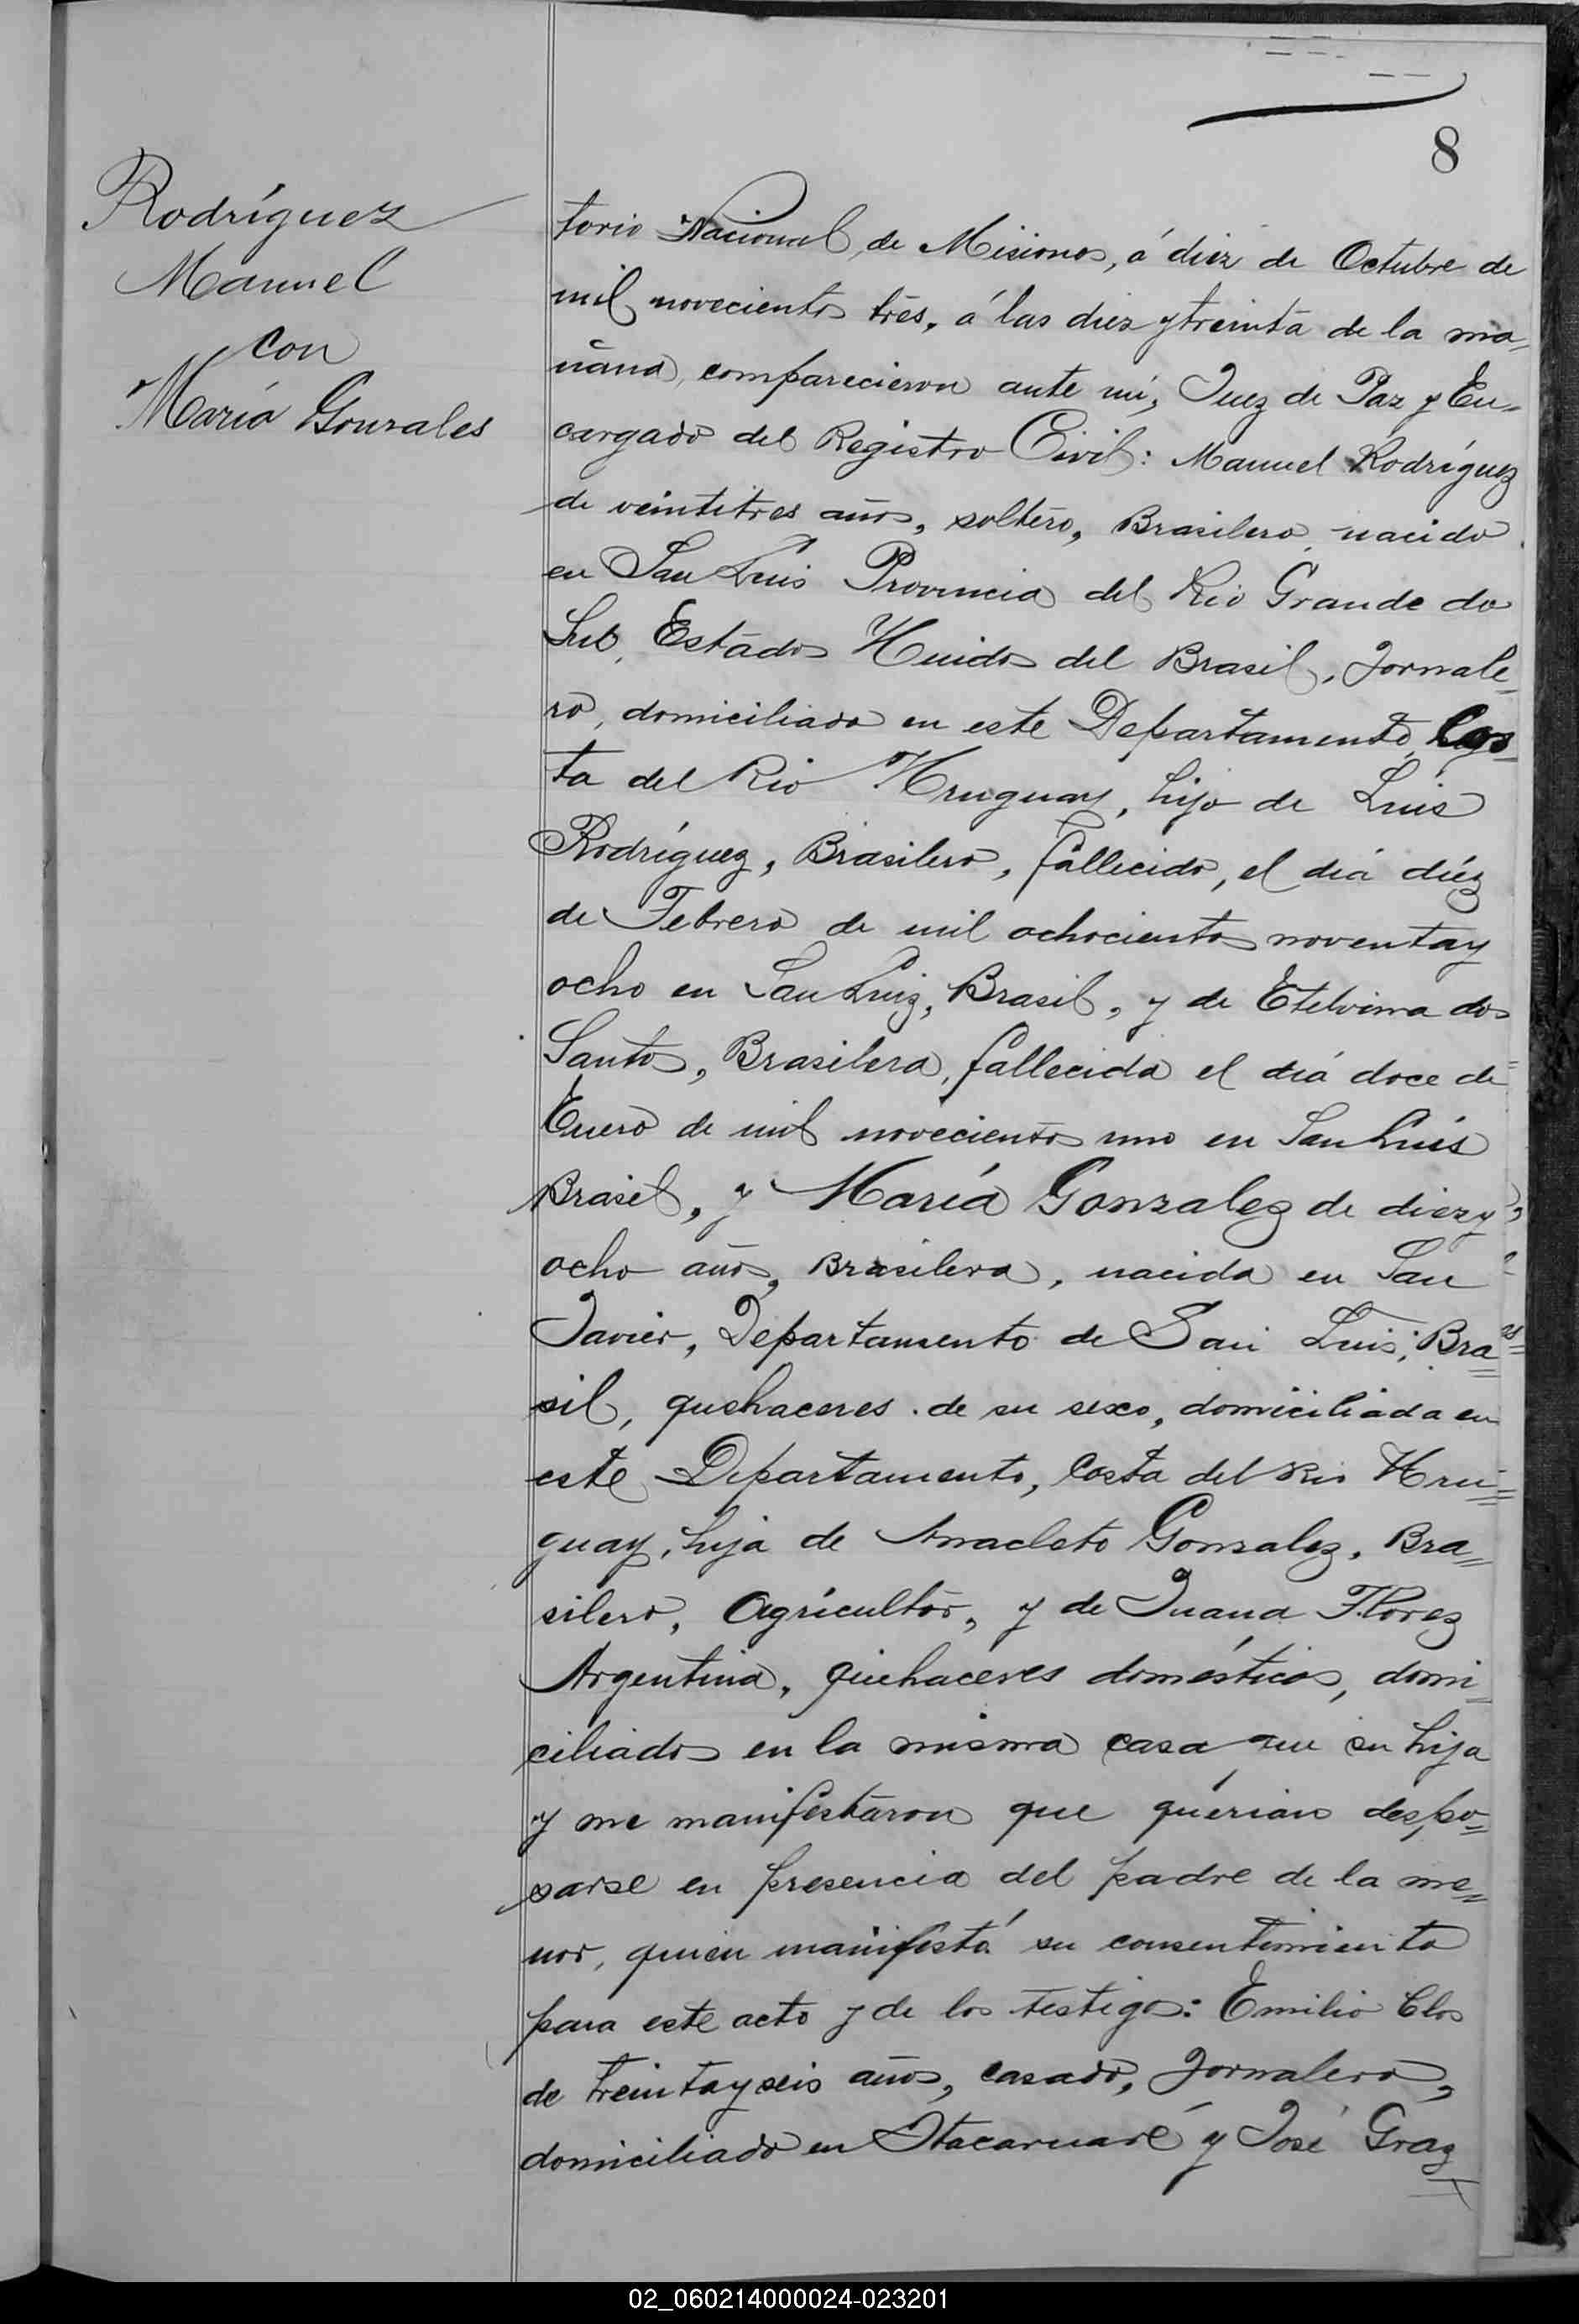 8
Rodríguez
Manuel
con
María Gonzales
torio Nacional, de Misiones, á diez de Octubre de
mil novecientos tres, á las diez y treinta de la ma-
ñana, comparecieron ante mí, Juez de Paz y En-
cargado del Registro Civil: Manuel Rodríguez
de veintitres años, soltero, Brasilero, nacido
en San Luis Provincia del Rio Grande do
Sul, Estados Unidos del Brasil, Jornale-
ro, domiciliado en este Departamento, Cos-
ta del Rio Uruguay, hijo de Luis
Rodríguez, Brasilero, fallecido, el día diéz
de Febrero de mil ochocientos noventay
ocho en San Luiz, Brasil, y de Etelvina dos
Santos, Brasilera, fallecida el día doce de
Enero de mil novecientos uno en San Luis
Brasil, y María Gonzalez de diez y
ocho años, Brasilera, nacida en San
Javier, Departamento de San Luis, Bra=
sil, quehaceres de su sexo, domiciliada en
este Departamento, Costa del Rio Uru=
guay, hija de Anacleto Gonzalez, Bra=
silero, Agricultor, y de Juana Florez
Argentina, quehaceres domésticos, domi=
ciliados en la misma casa que su hija
y me manifestaron que querían despo=
sarse en presencia del padre de la me=
nor, quien manifestó su consentimiento
para este acto y de los testigos: Emilio Clos
de treinta y seis años, casado, Jornalero,
domiciliado en Itacaruaré y José Graz
02_060214000024-023201